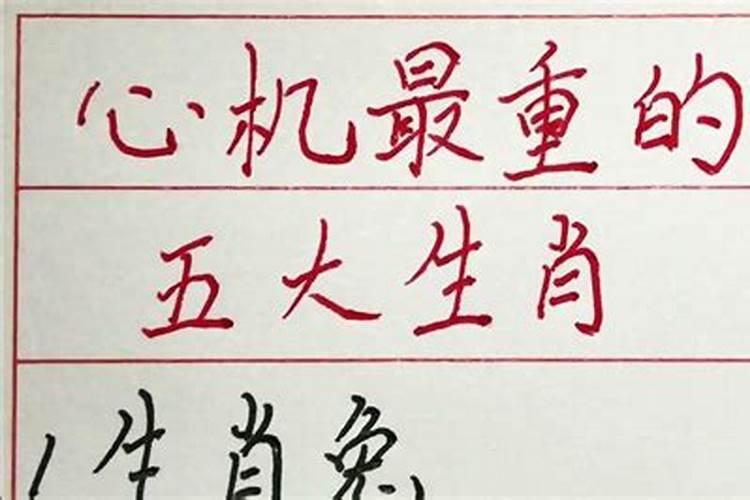 心机最重的
五大生肖
1生肖兔